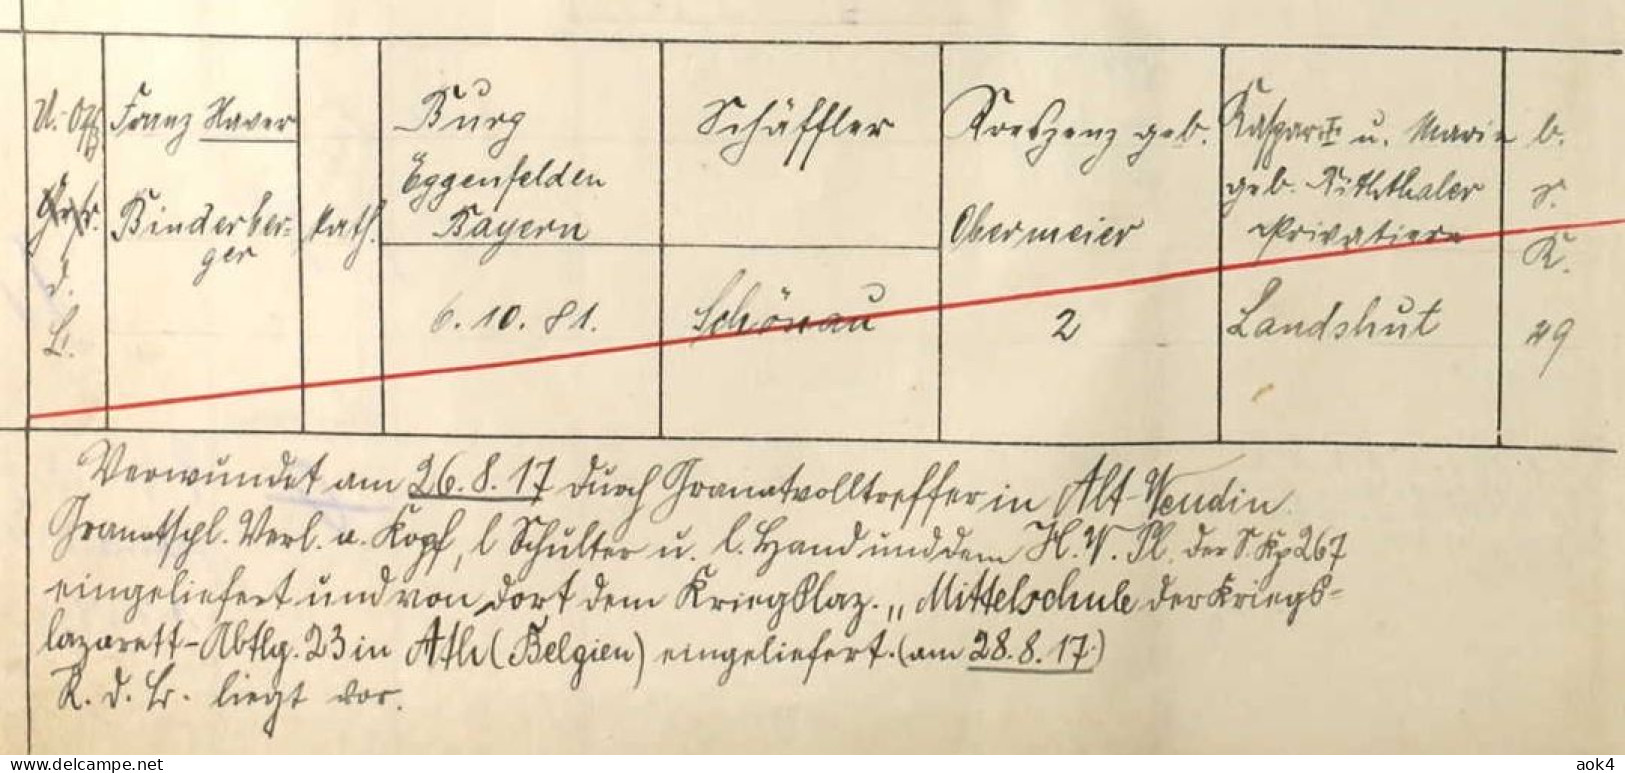 U.-Offz.
d.
L.
Franz Xaver
Binderber-
ger
kath.
Burg
Eggenfelden
Bayern
6. 10. 81.
Schäffler
Schönau
Kreszenz geb.
Obermeier
2
Kaspar u. Marie
geb.
Privatiere
Landshut
b.
K.
29
Verwundet am 26.8.17 durch Granatvolltreffer in Alt-Vendin.
Granatspl. Verl. a. Kopf, l Schulter u. l. Hand und dem H. V. Pl. der S. Kp 267
eingeliefert und von dort dem Kriegslaz. „Mittelschule der Kriegs-
lazarett-Abtlg. 23 in Ath (Belgien) eingeliefert. (am 28.8.17.)
K. d. L. liegt vor.
https://www.ancestry.de
aok4